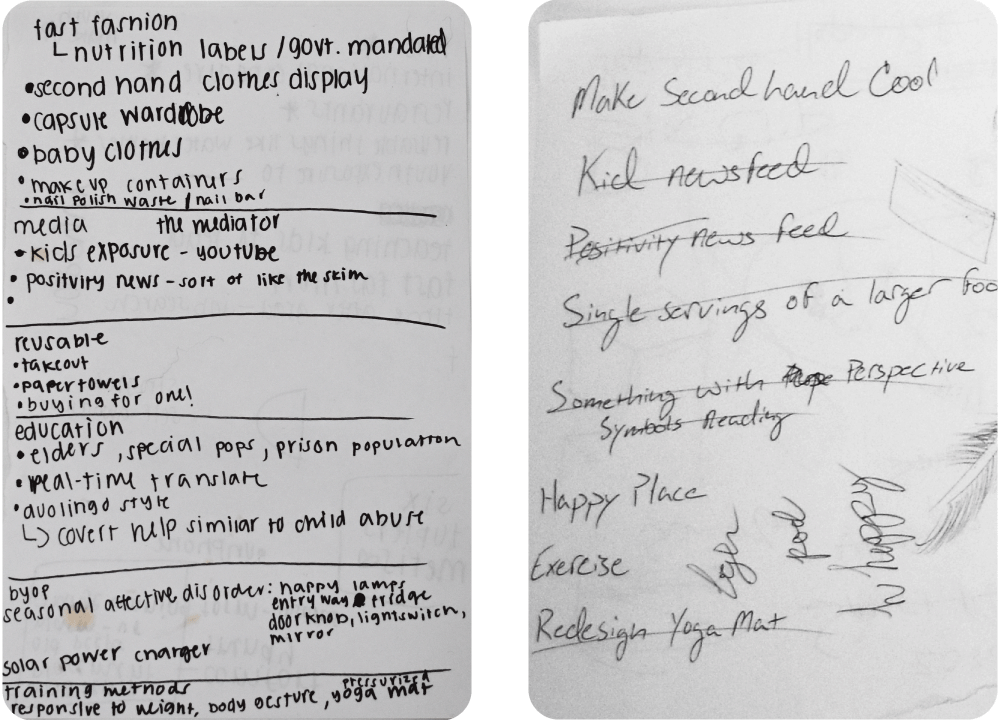 fast fashion
└ nutrition labels / govt. mandated
• second hand clothes display
• capsule wardrobe
• baby clothes
• makeup containers
• nail polish waste / nail bar
media the mediator
• kids exposure - youtube
• positvity news - sort of like the skim
•
reusable
• takeout
• papertowels
• buying for one!
education
• elders, special pops, prison population
• real-time translate
• duolingo style
↳ covert help similar to child abuse
byop
seasonal affective disorder: happy lamps
entry way fridge
door knob, lightswitch,
mirror
solar power charger
training methods
pressurized
responsive to weight, body gesture, yoga mat
Make Second hand Cool
Kid newsfeed
Positivity news feed
Single servings of a larger foo
Something with Perspective
Symbols Reading
Happy Place
Exercise
Redesign Yoga Mat
pod
happy